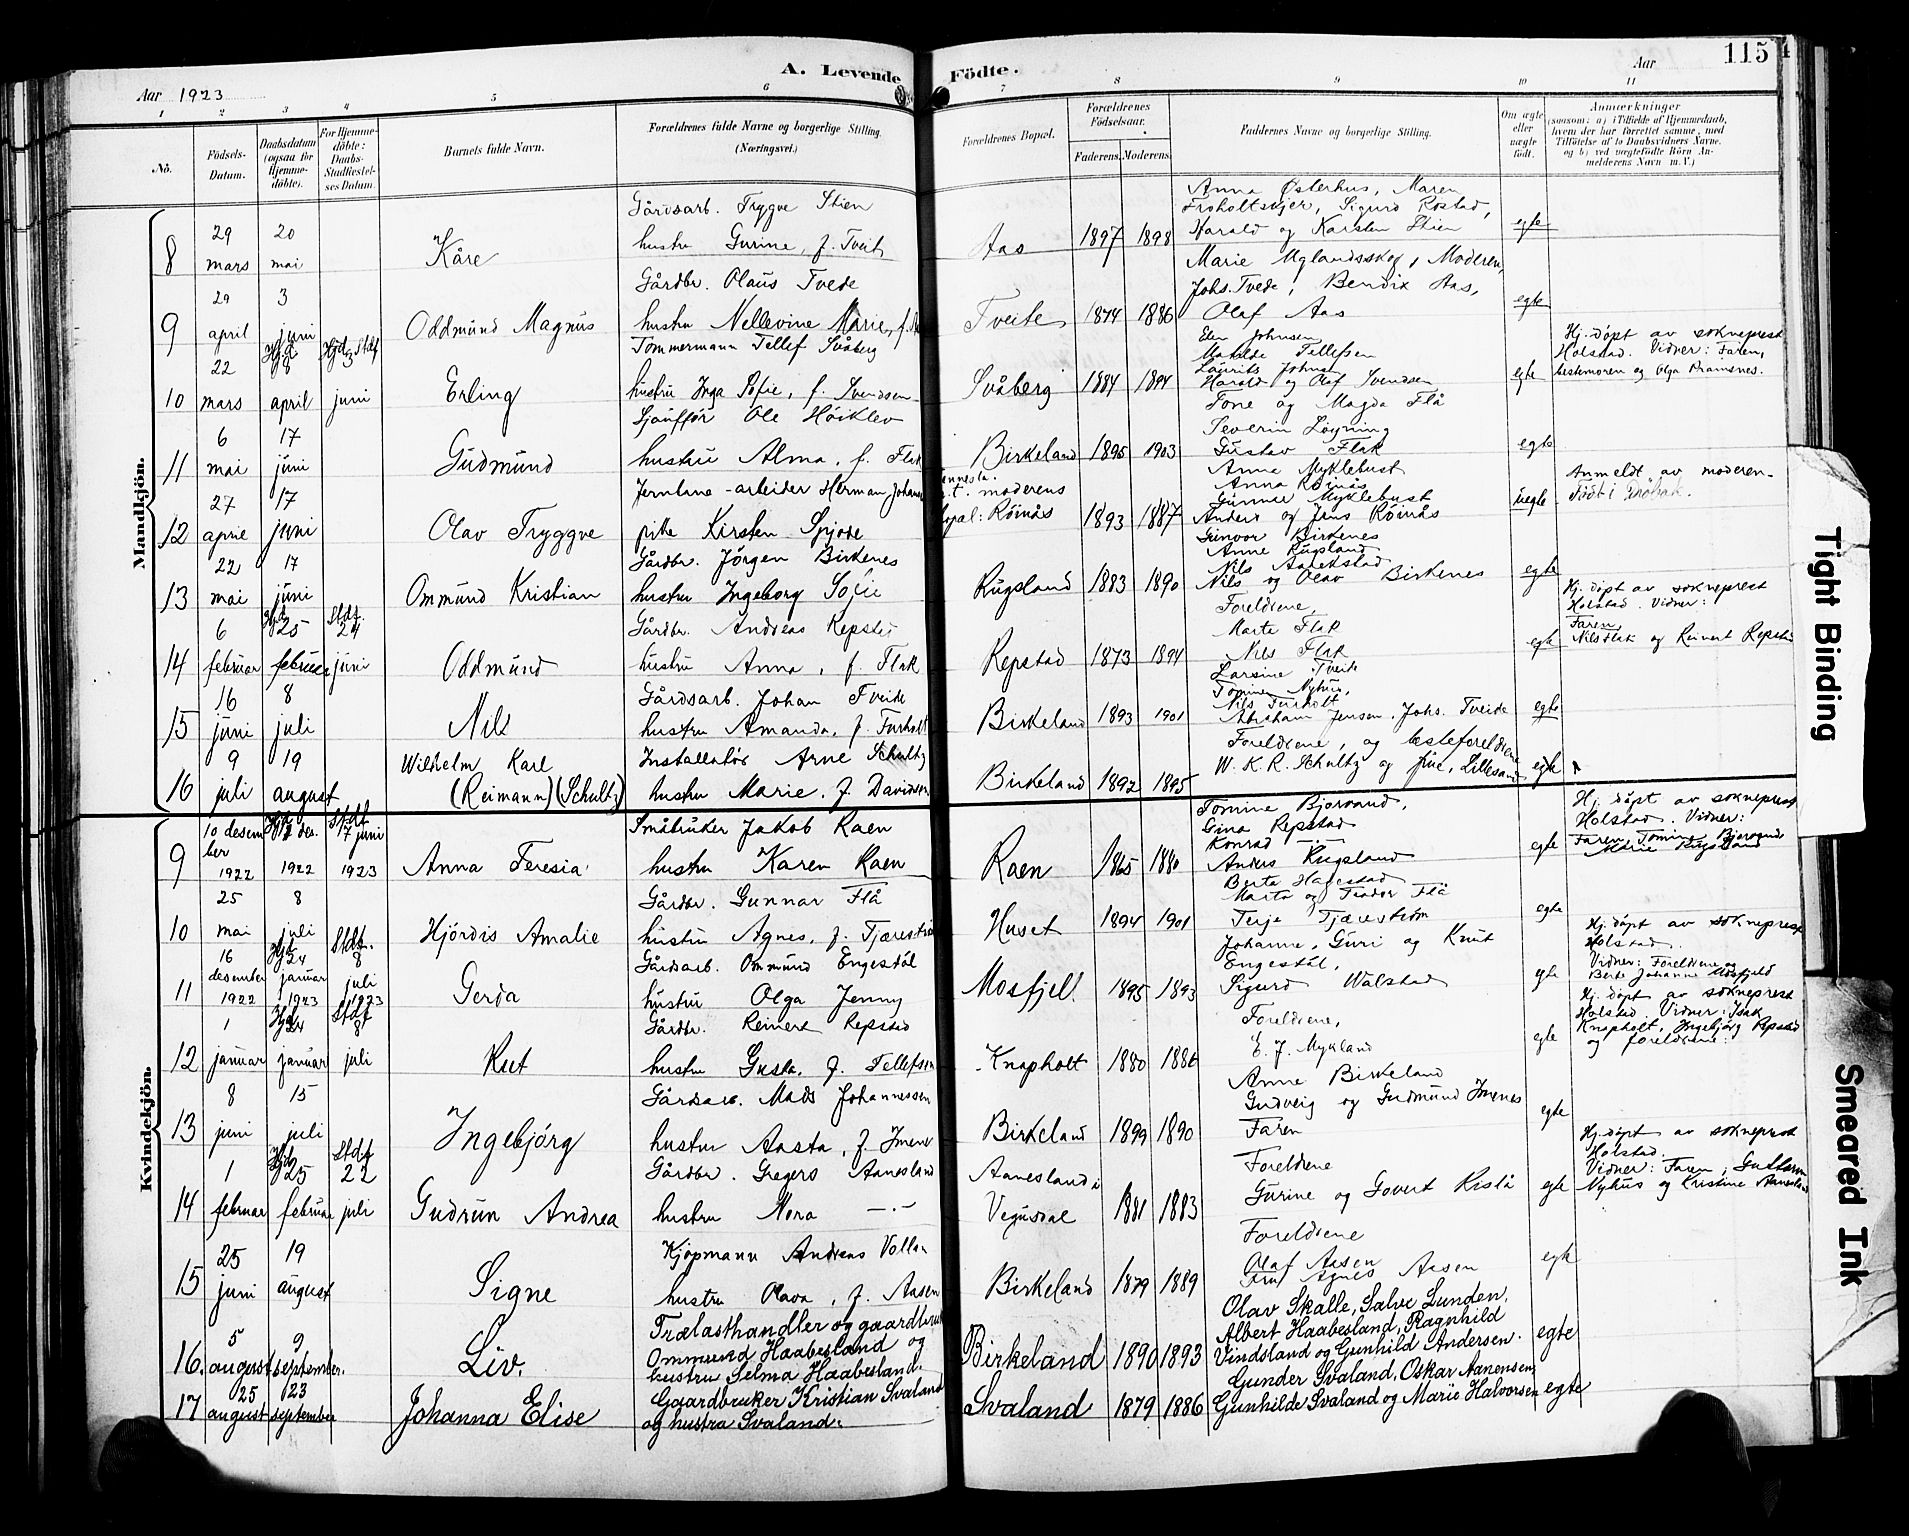 A. Levende Födte.
115
Aar 1923
Aar
1 2 3 4 5 6 7 8 9 10 11
No.
Födsels-Datum.
Daabsdatum (ogsaa for Hjemmedöbte).
For Hjemmedöbte: Daabs-Stadfæstelses Datum.
Barnets fulde Navn.
Forældrenes fulde Navne og borgerlige Stilling. (Næringsvei.)
Forældrenes Bopæl.
Forældrenes Födselsaar.
Faderens. Moderens.
Faddernes Navne og borgerlige Stilling.
Om ægte eller uægte födt.
Anmærkninger
(saasom: a) i Tilfælde af Hjemmedaab, hvem der har forrettet samme, med Tilföielse af to Daabsvidners Navne. og b) ved uægtefödte Börn Anmelderens Navn m. V.)
Mandkjön.
8 29 mars 20 mai Kåre Gårdsarb. Trygve Stien hustru Gurine, f. Tveit Aas 1897 1898 Anna Østerhus, Maren Froholtskjer, Sigurd Rostad, Harald og Karsten Stien egte
9 29 april 3 juni Oddmund Magnus Gårdbr. Olaus Tvede hustru Nellevine Marie, f. Tveite 1874 1886 Marie Uglandsskog, Moderen, Johs. Tvede, Bendix Aas, Olaf Aas egte
10 22 mars Hjd 8 april Hjd Stdf 3 juni Erling Tømmermann Tellef Svåberg hustru Inga Sofie, f. Svendsen Svåberg 1884 1894 Elen Johnsen Matilde Tellefsen Laurits Johns Harald og Olaf Svendsen egte Hj. døpt av sokneprest Holstad. Vidner: Faren, bestemoren og Olga Dramsnes.
11 6 mai 17 juni Gudmund Sjauffør Ole Høiklev hustru Alma, f. Flak Birkeland 1895 1903 Tone og Magda Flå Severin Løyning Gustav Flak egte
12 27 april 17 juni Olav Tryggve Jerntane-arbeider Herman Johans pike Kirsten Spjøde Vennesla. moderens bopæl: Röinås 1893 1887 Anna Myklebust Anna Röinås Gunnar Myklebust Anders og Jens Röinås uegte Anmeldt av moderen - Født i Drøbak.
13 22 mai 17 juni Ommund Kristian Gårdbr. Jørgen Birkenes hustru Ingeborg Sofie Rugsland 1883 1890 Gunvor Birkenes Anne Rugsland Nils Aanekstad Nils og Olav Birkenes egte
14 6 februar Hjd 25 februar Stdf. 24 juni Oddmund Gårdbr. Andreas Repstad hustru Anna, f. Flak Repstad 1873 1894 Foreldrene, Marta Flak Nils Flak egte Hj. døpt av sokneprest Holstad. Vidner: Faren, Nils Flak og Reinert Repstad
15 16 juni 8 juli Nils Gårdsarb. Johan Tveide hustru Amanda, f. Furholt Birkeland 1893 1901 Larsine Tveide Tomine Nyhus, Nils Furholt Abraham Jensen, Johs. Tveide egte
16 9 juli 19 august Wilhelm Karl (Reimann) (Schultz) Installatør Arne Schultz hustru Marie, f. Davidsen Birkeland 1892 1895 Foreldrene, og besteforeldrene W. K. R. Schultz og frue, Lillesand egte
Kvindekjön.
9 10 desember 1922 Hjd des. 1922 Stdf 17 juni 1923 Anna Teresia Småbruker Jakob Raen hustru Karen Raen Raen 1865 1880 Tomine Bjorvand, Gina Repstad Konrad Anders Rugsland egte Hj. døpt av sokneprest Holstad. Vidner: Faren, Tomine Bjorvand Marie Rugsland
10 25 mai 8 juli Hjördis Amalie Gårdbr. Gunnar Flå hustru Agnes, f. Tjærestr Huset 1894 1901 Berta Hagestad Marta og Teodor Flå Terje Tjæreström egte
11 16 desember 1922 Hjd 24 januar 1923 Stdf. 8 juli 1923 Gerda Gårdsarb. Ommund Engestöl hustru Olga Jenny Mosfjell 1895 1893 Johanne, Guri og Knut Engestöl, Sigurd Walstad egte Hj. døpt av sokneprest Holstad. Vidner: Foreldrene og Berte Johanne Mosfjeld
12 1 januar Hjd 24 januar Stdf 8 juli Rut Gårdbr. Reinert Repstad hustru Gusta, f. Tellefsen Knapholt 1880 1886 Foreldrene, E. J. Mykland egte Hj. døpt av sokneprest Holstad. Vidner: Isak Knapholt, Ingebjørg Repstad og foreldrene.
13 8 juni 15 juli Ingebjörg Gårdsarb. Mads Johannessen hustru Aasta, f. Imenes Birkeland 1899 1890 Anne Birkeland Gudveig og Gudmund Imenes Faren egte
14 1 februar Hjd 25 februar Stdf 22 juli Gudrun Andrea Gårdbr. Gregers Aanesland hustru Nora —·— Aanesland i Vegusdal 1881 1883 Foreldrene Gurine og Govert Risla egte Hj. døpt av sokneprest Holstad. Vidner: Faren, Guttorm Nyhus og Kristine Aanesland
15 25 juni 19 august Signe Kjøpmann Andreas Vollan hustru Olava, f. Aasen Birkeland 1879 1889 Foreldrene Olaf Aasen Fru Agnes Aasen egte
16. 5 august 9 september. Liv. Trælasthandler og gaardbruk Ommund Haabesland og hustru Selma Haabesland. Birkeland 1890 1893 Olav Skalle, Salve Lunden, Albert Haabesland, Ragnhild Vindsland og Gunhild Andersen. egte
17 25 august 23 september Johanna Elise Gaardbruker Kristian Svaland og hustru Svaland. Svaland 1879 1886 Gunder Svaland, Oskar Aanensen, Gunhilde Svaland og Marie Halvorsen egte
Tight Binding
Smeared Ink